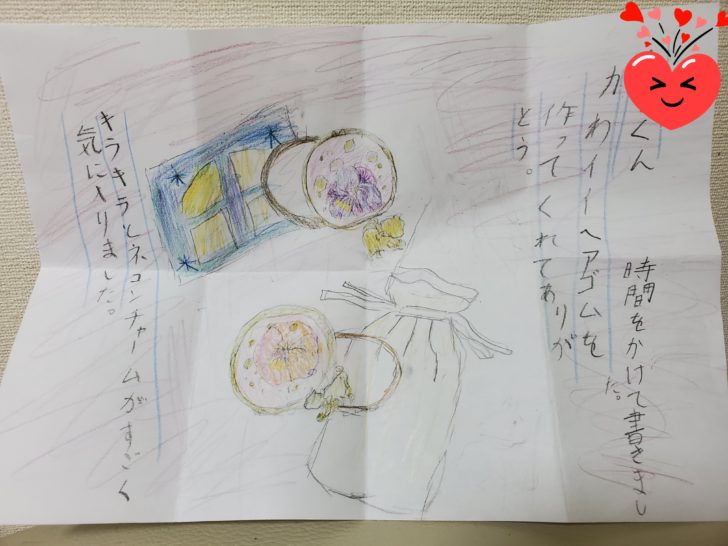 くん
カわイーヘアゴムを
作ってくれてありが
とう。
時間をかけて書きまし
た。
キラキラとネコンチャームがすごく
気に入りました。